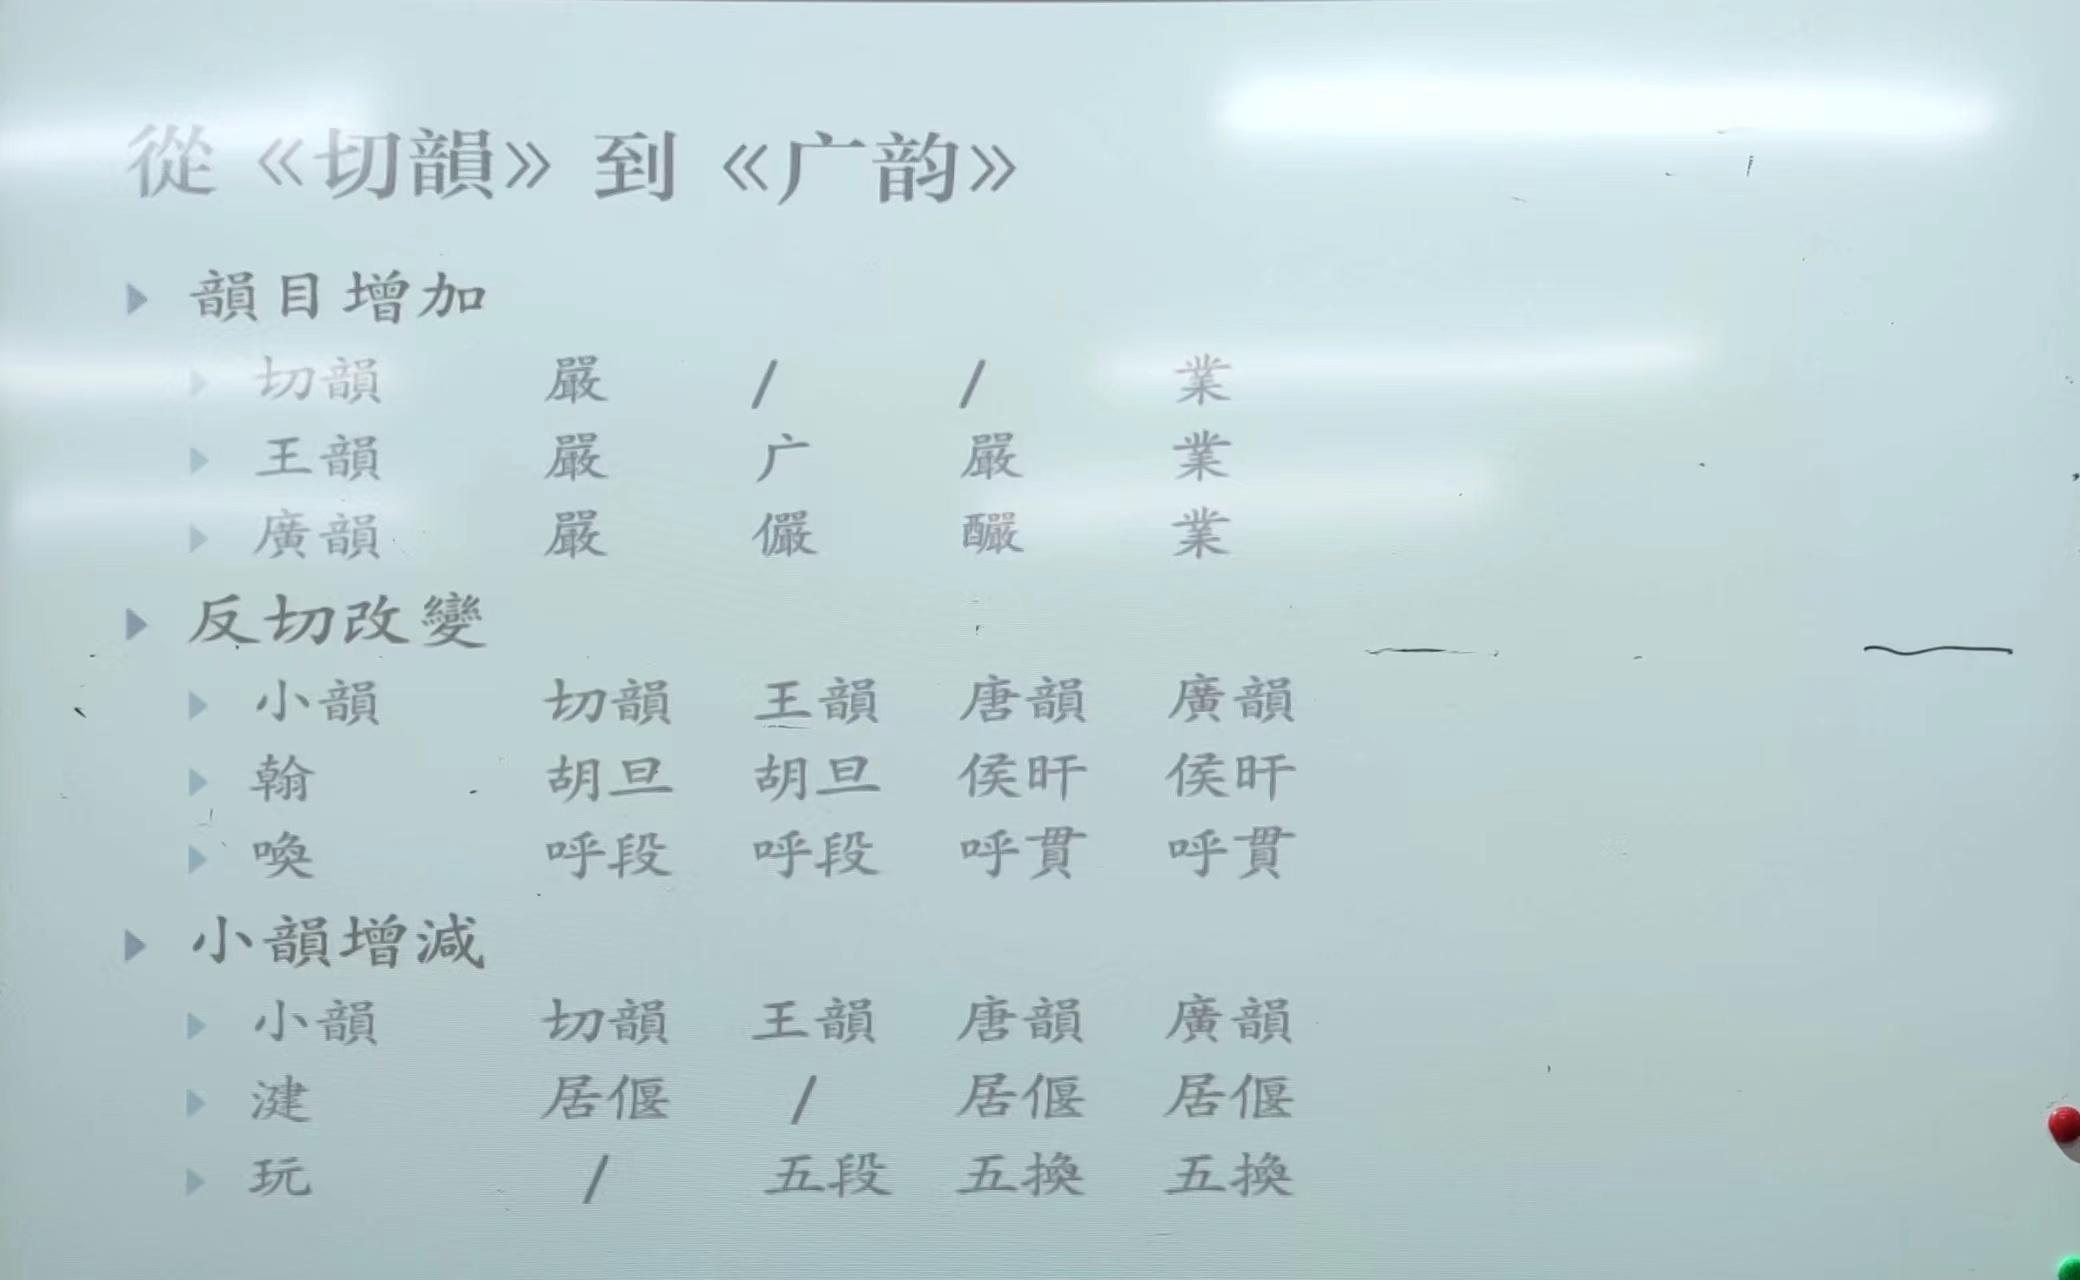 從《切韻》到《广韵》
韻目增加
切韻 嚴 / / 業
王韻 嚴 广 嚴 業
廣韻 嚴 儼 釅 業
反切改變
小韻 切韻 王韻 唐韻 廣韻
翰 胡旦 胡旦 侯旰 侯旰
喚 呼段 呼段 呼貫 呼貫
小韻增減
小韻 切韻 王韻 唐韻 廣韻
湕 居偃 / 居偃 居偃
玩 / 五段 五換 五換